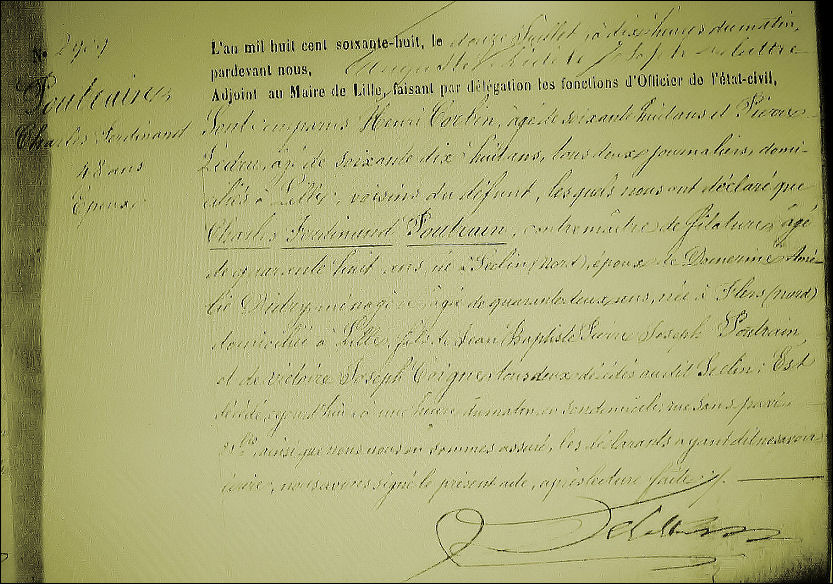 N° 2959
Poutrain
Charles Ferdinand
48 ans
Epoux
L'an mil huit cent soixante-huit, le douze Juillet, à dix heures du matin,
pardevant nous, Auguste Joseph
Adjoint au Maire de Lille, faisant par délégation les fonctions d'Officier de l'état-civil,
Sont comparus Henri Corbin, âgé de soixante huit ans et Pierre
Ledru, âgé de soixante dix huit ans, tous deux journaliers, domi-
ciliés à Lille, voisins du défunt, lesquels nous ont déclaré que
Charles Ferdinand Poutrain, contremaître de filature, âgé
de quarante huit ans, né à Seclin (Nord), époux de Amé-
lie ménagère, âgée de quarante deux ans, née à Flers (nord)
domiciliée à Lille, fils de Jean Baptiste Pierre Joseph Poutrain
et de Victoire Joseph tous deux décédés audit Seclin; Est
décédé cejourd'hui à une heure du matin, en son domicile, rue sans pavé
ainsi que nous nous en sommes assuré, les déclarants ayant dit ne savoir
écrire, nous avons signé le présent acte, après lecture faite.